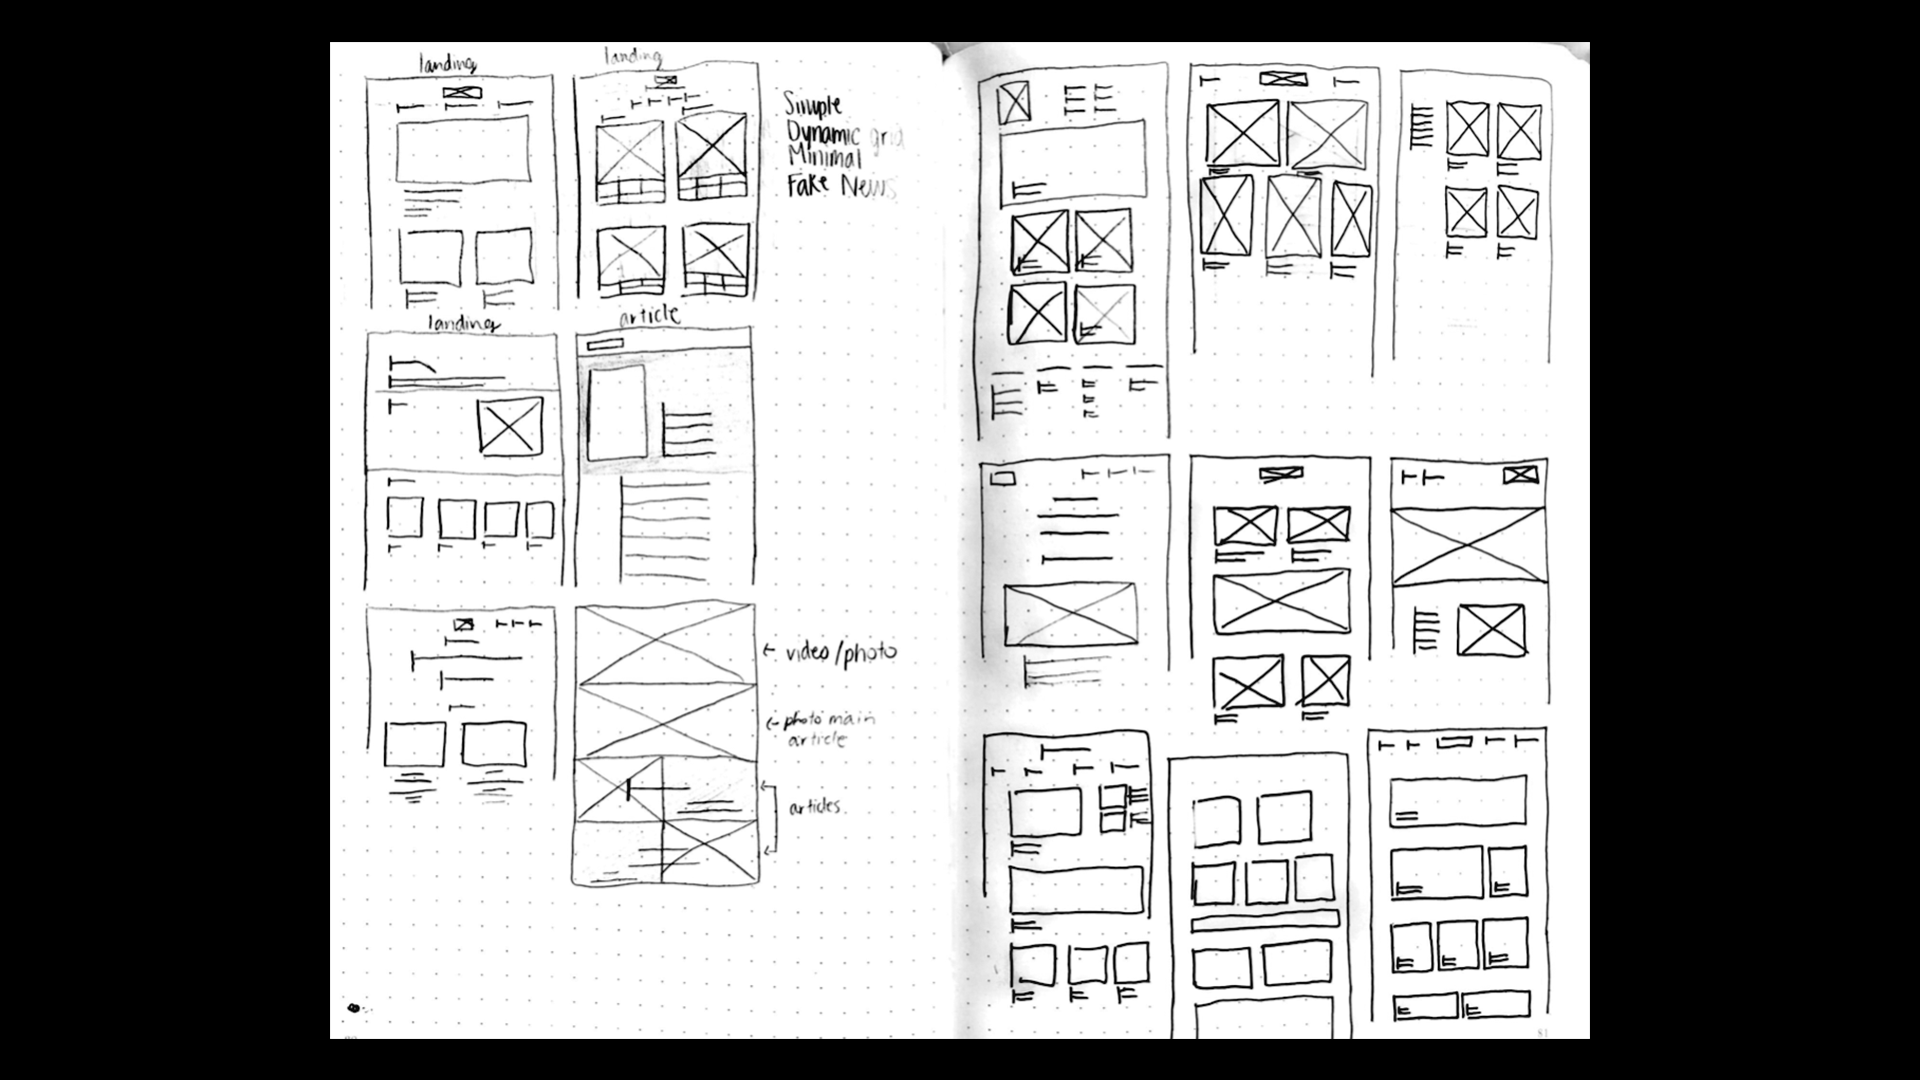 landing
landing
Simple
Dynamic grid
Minimal
Fake News
landing
article
← video/photo
← photo main
article
articles
81